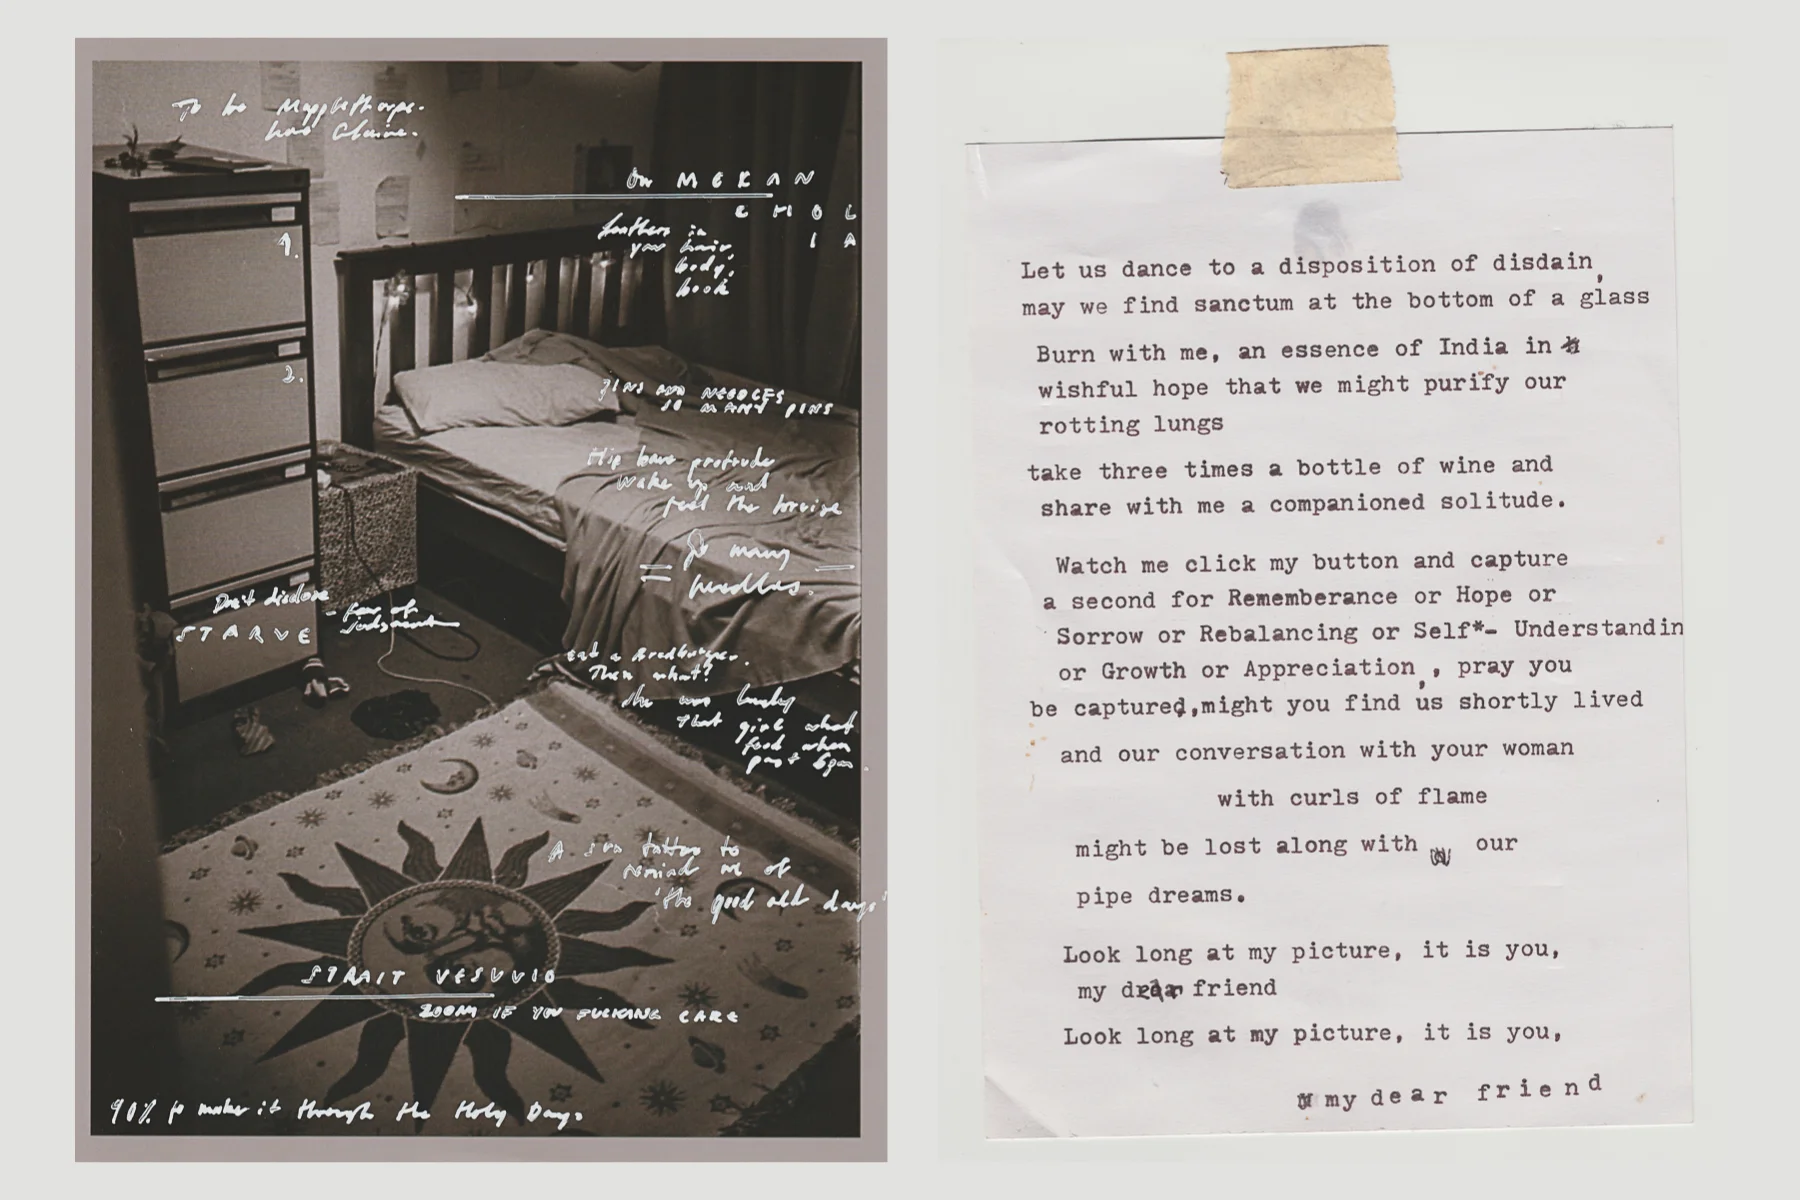 To be Mapplethorpe.
has Claire.
On M E K A N
C H O L
I A
feathers in
your hair,
body,
book
1.
2.
PINS AND NEEDLES
SO MANY PINS
Hip bones protrude
wake up and
feel the bruise
So many
needles.
Don't disclose
- fear of
judgment
STARVE
Eat a
Then what?
She was lucky
That girl what
food when
past 6pm.
A sun tattoo to
remind me of
'the good old days'
STRAIT VESUVIO
ZOOM IF YOU FUCKING CARE
90% to make it through the Holy Days.
Let us dance to a disposition of disdain,
may we find sanctum at the bottom of a glass
Burn with me, an essence of India in
wishful hope that we might purify our
rotting lungs
take three times a bottle of wine and
share with me a companioned solitude.
Watch me click my button and capture
a second for Rememberance or Hope or
Sorrow or Rebalancing or Self*- Understandin
or Growth or Appreciation , pray you
be captured,might you find us shortly lived
and our conversation with your woman
with curls of flame
might be lost along with our
pipe dreams.
Look long at my picture, it is you,
my dear friend
Look long at my picture, it is you,
my dear friend